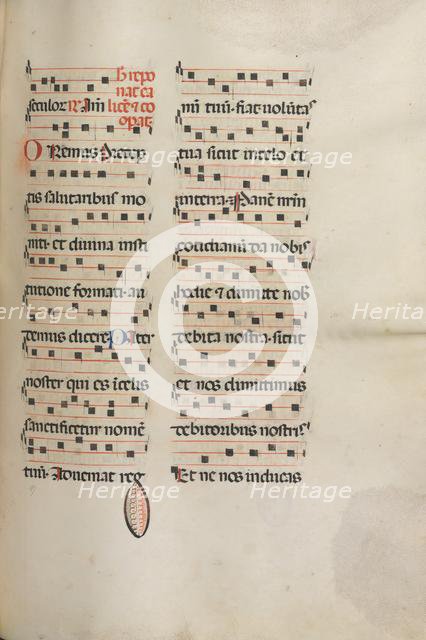 hic repo
nat ca
seculor℟ Am̄ lice᷒ & co
opat.
Oremus Precep
tis salutaribus mo
niti· et diuina insti
tutione formati· au
demus dicere. Pater
noster qui es i celis
sanctificetur nomē
tuū· Adueniat reg
nū tuū· fiat uolūtas
tua sicut in celo et
in terra· Panē nr̄m
cotidianū da nobis
hodie & dimitte nob
debita nostra· sicut
et nos dimittimus
debitoribus nostris
Et ne nos inducas
Heritage
Heritage
Heritage
Heritage
Heritage
Heritage
Heritage